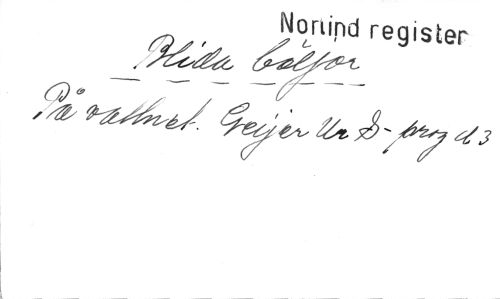 Norlind register
Blida böljor
På vattnet. Geijer Ur S-prog d 3